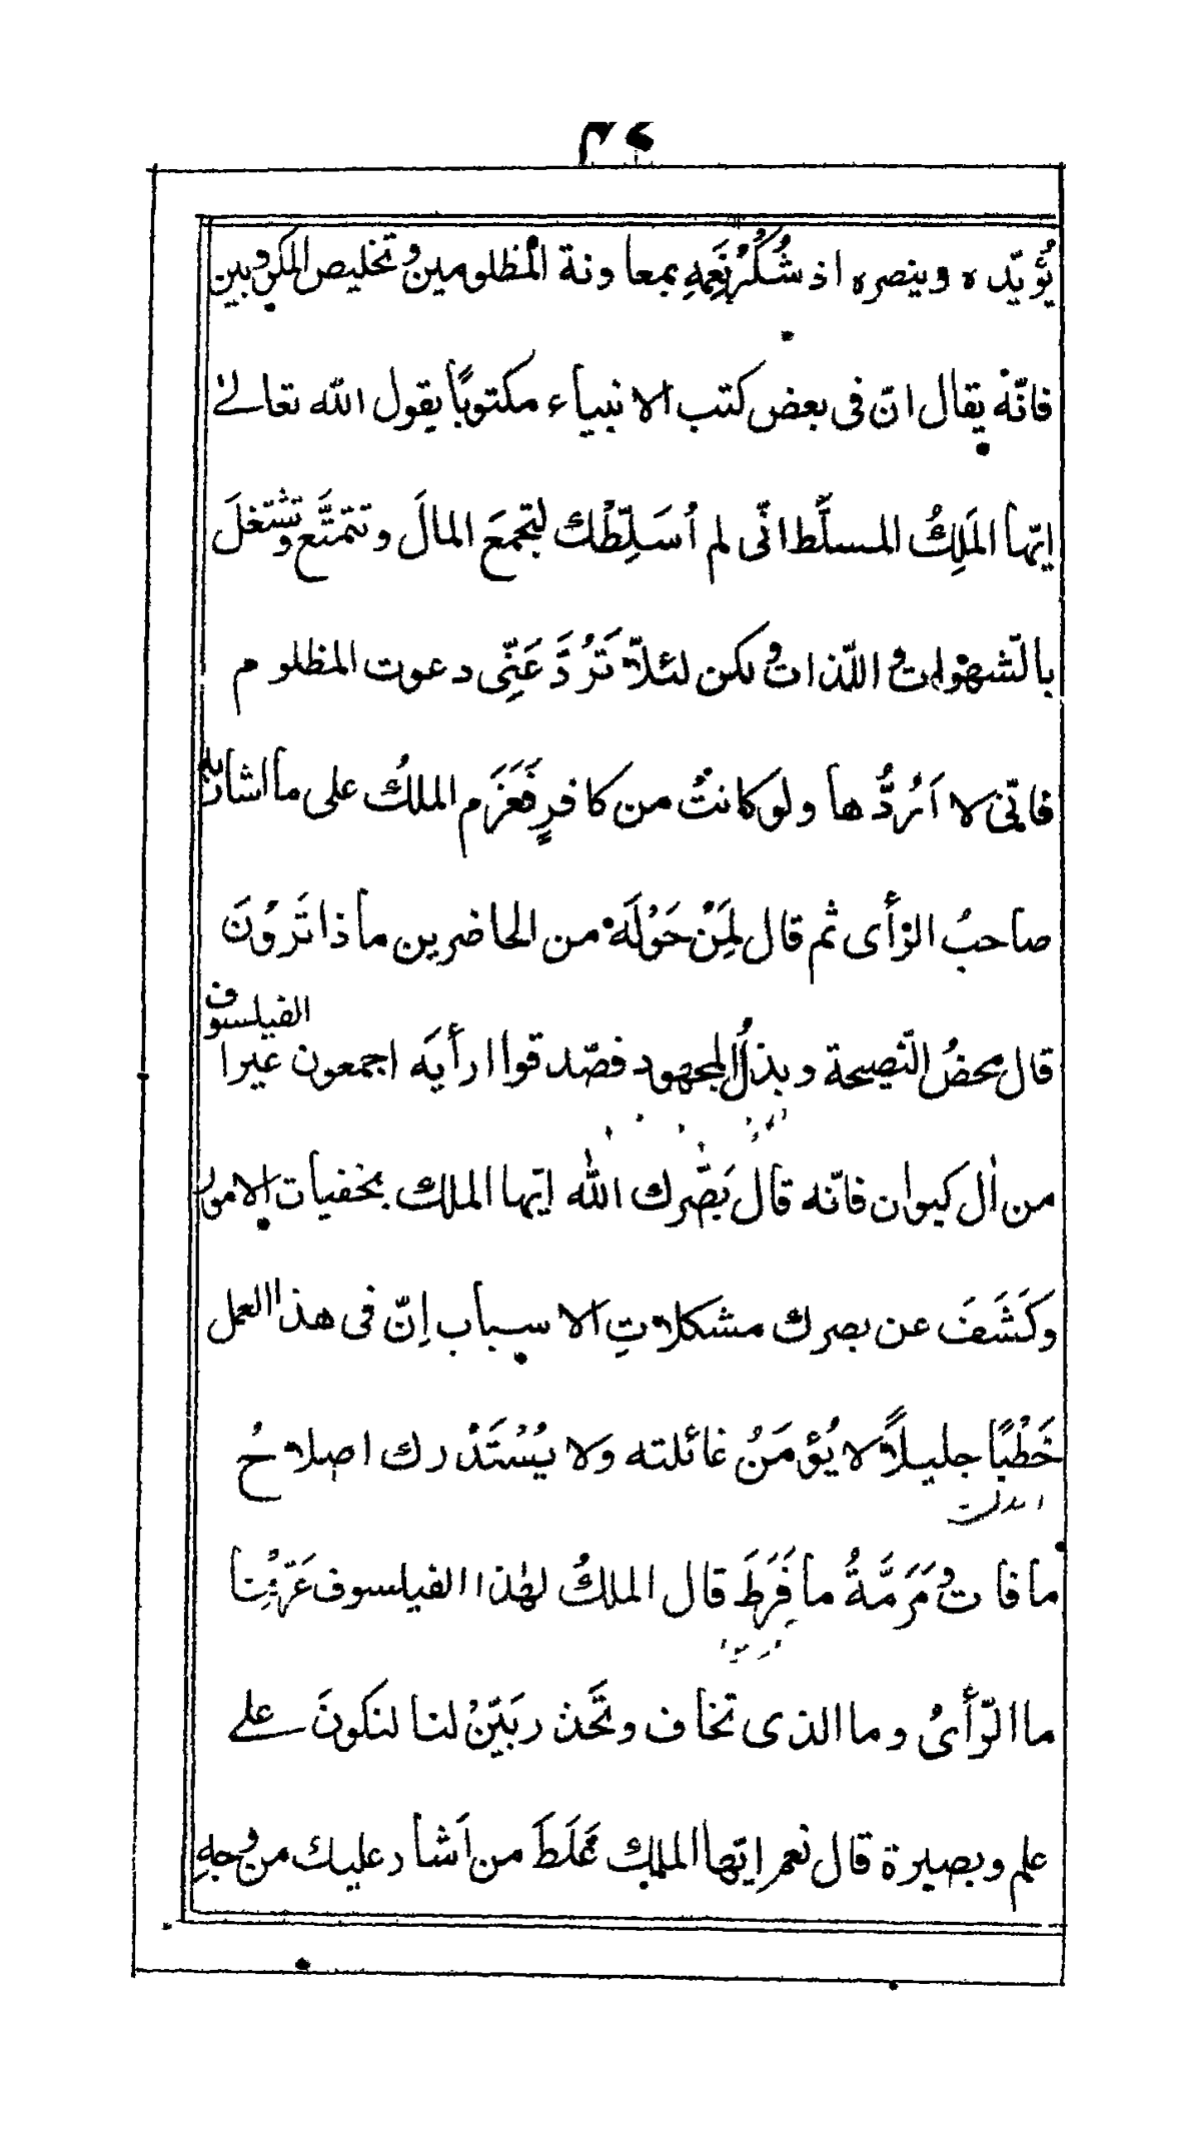 يُؤيّده وينصره اذ شُكْرُ نِعَمِهِ بمعاونة المُظلومين وتخليص المكروبين
فانّهُ يقال انّ فى بعض كتب الانبياء مكتوبًا يقول الله تعالىٰ
ايّها المَلِكُ المسلَّط انّى لم اُسَلِّطْك لِتجمعَ المالَ وتتمتَّع وتشتغلَ
بالشّهوٰات واللّذات ولكن لئلاّ تَرُدَّ عَنِّى دعوت المظلوم
فانّى لا اَرُدُّها ولو كانتْ من كافرٍ فَعَزَم الملكُ على ما اشار به
صاحبُ الرْأى ثم قال لِمَنْ حَوْلَهُ من الحاضرين ماذا تَرَوْنَ
قال محضُ النّصيحة وبذلُ المجهود فصّدقوا ارأيَه اجمعون غيرا الفيلسوف
من اٰل كيوان فانّه قال بَصَّرك الله ايّها الملك بخفيات الامور
وكَشَفَ عن بصرك مشكلاتِ الاسباب إنّ فى هذا العمل
خَطْبًا جليلاً لا يُؤمَنُ غائلته ولا يُسْتَدْرك اصلاحُ
مافات ومَرَمَّةُ ما فَرَطَ قال الملكُ لهٰذا الفيلسوف عَرِّفْنا
ما الرّأىُ وما الذى تخاف وتَحَذر بَيّنْ لنا لنكونَ على
علم وبصيرة قال نعم ايّها الملك غَلَطَ من اَشار عليك من وجهِ